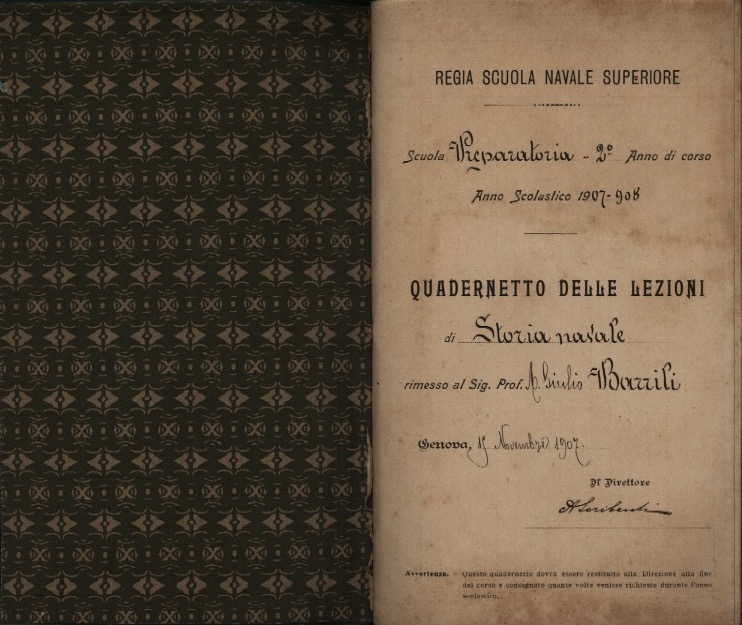 REGIA SCUOLA NAVALE SUPERIORE
Scuola Preparatoria - 2º Anno di corso
Anno Scolastico 1907-908
QUADERNETTO DELLE LEZIONI
di Storia navale
rimesso al Sig. Prof. A. Giulio Barrili
Genova, Novembre 1907.
Il Direttore
Avvertenza. - Questo quadernetto dovrà essere restituito alla Direzione alla fine
del corso e consegnato quante volte venisse richiesto durante l'anno
scolastico.